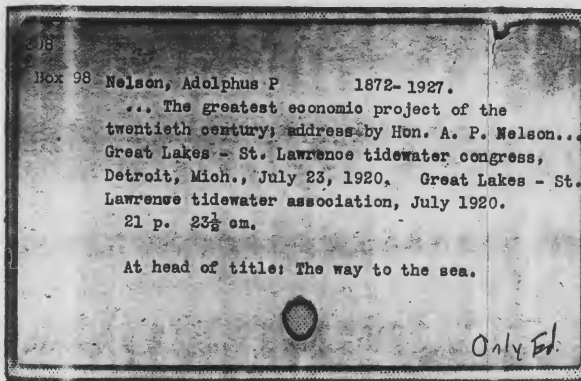 308
Box 98
Nelson, Adolphus P 1872-1927.
... The greatest economic project of the
twentieth century; address by Hon. A. P. Nelson...
Great Lakes - St. Lawrence tidewater congress,
Detroit, Mich., July 23, 1920. Great Lakes - St.
Lawrence tidewater association, July 1920.
21 p. 23½ cm.
At head of title: The way to the sea.
Only Ed.